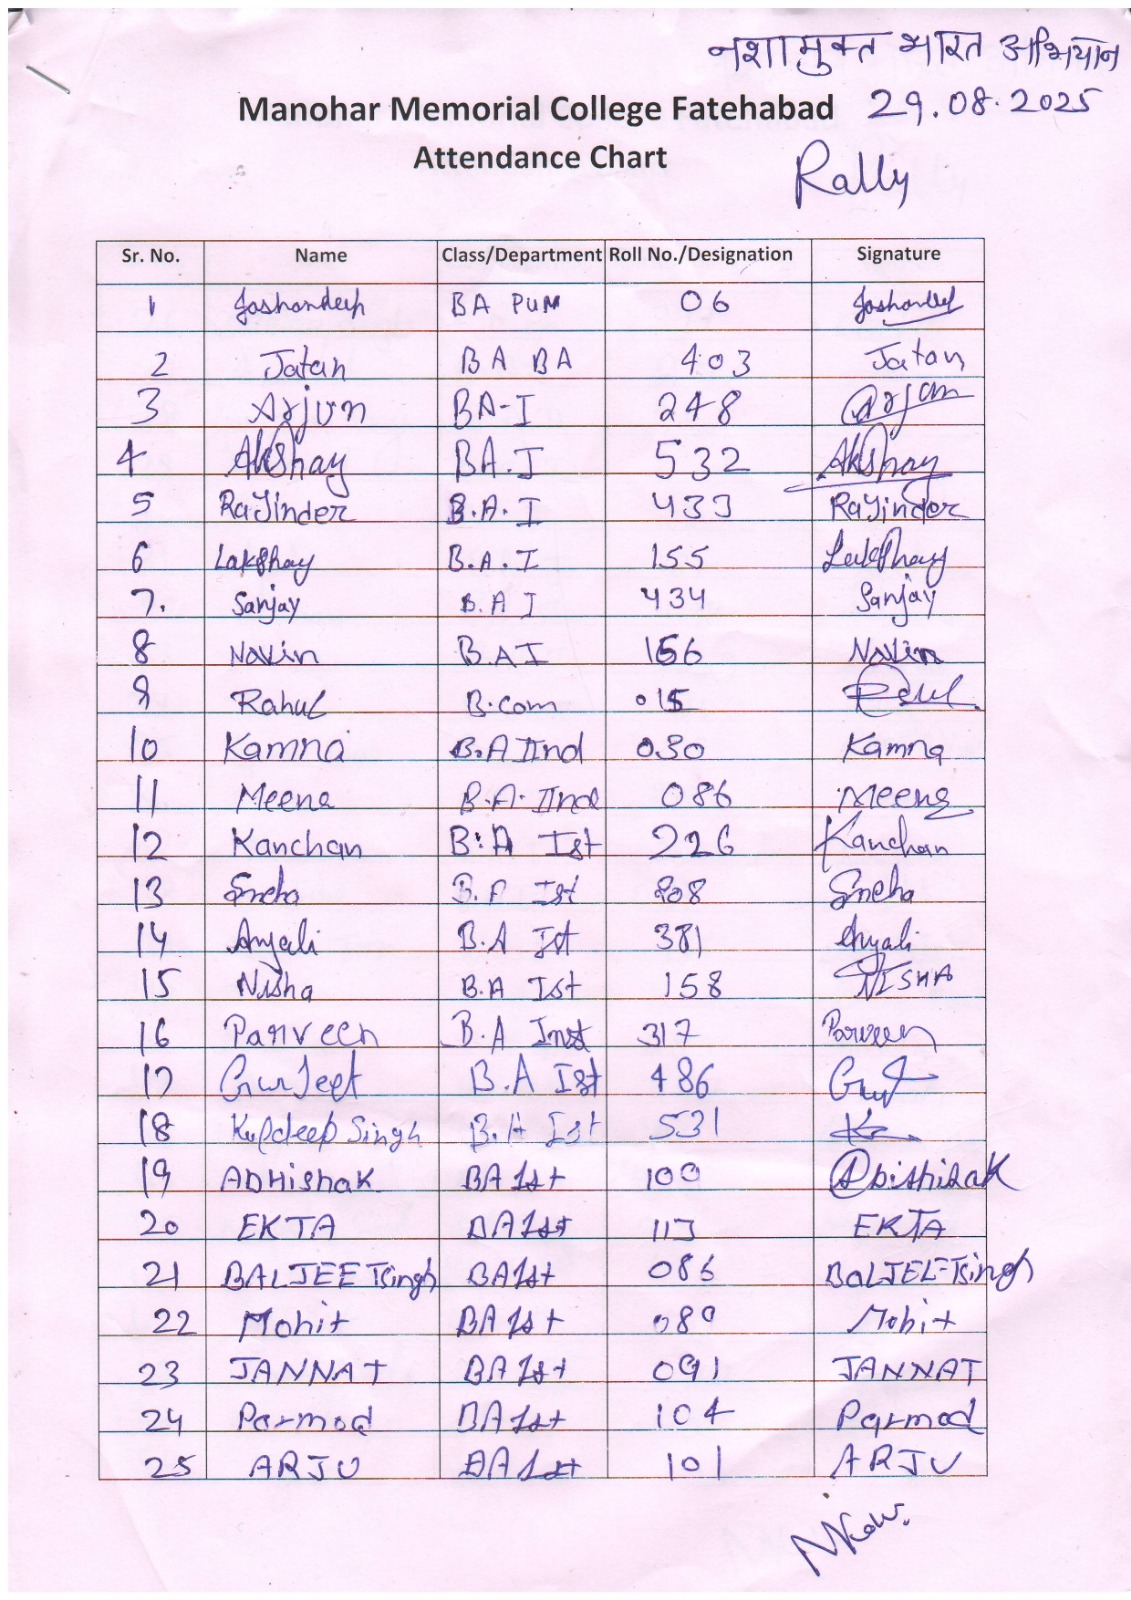 नशामुक्त भारत अभियान
Manohar Memorial College Fatehabad 29.08.2025
Attendance Chart
Rally
Sr. No. Name Class/Department Roll No./Designation Signature
1 Jashandeep BA PUN 06 Jashandeep
2 Jatan BA BA 403 Jatan
3 Arjun BA-I 248 Arjan
4 Akshay BA.I 532 Akshay
5 Rajinder B.A.I 433 Rajinder
6 Lakshay B.A.I 155 Lakshay
7. Sanjay B.A I 434 Sanjay
8 Navin B.A I 166 Navin
9 Rahul B.com 015
10 Kamna B.A IInd 030 Kamna
11 Meena B.A. IInd 086 Meena
12 Kanchan B.A Ist 226 Kanchan
13 Sneha B.A Ist 808 Sneha
14 Anjali B.A Ist 381 Anjali
15 Nisha B.A Ist 158 NISHA
16 Parveen B.A 317 Parveen
17 GurJeet B.A Ist 486
18 Kuldeep Singh B.A Ist 531
19 ABHishak BA 1st 100 Abishihak
20 EKTA BA 1st 113 EKTA
21 BALJEET Singh BA 1st 086 BALJEET Singh
22 Mohit BA 1st 080 Mohit
23 JANNAT BA 1st 091 JANNAT
24 Parmod BA 1st 104 Parmod
25 ARJU BA 1st 101 ARJU